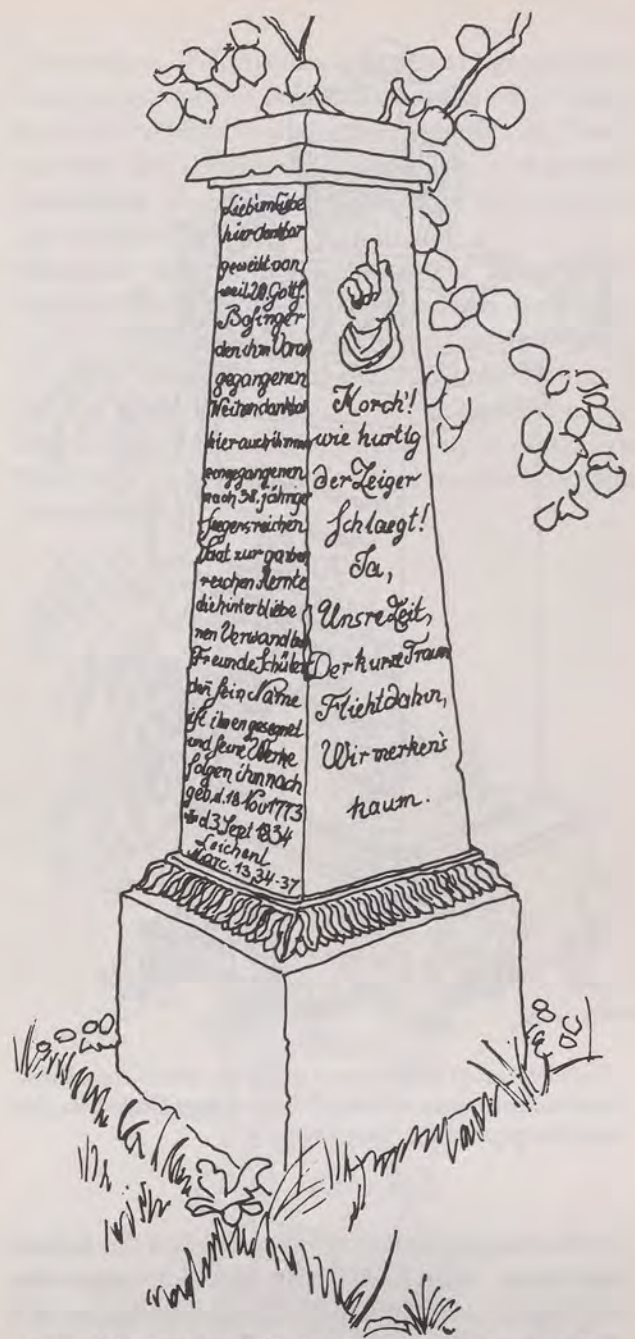 Lieb'um Liebe
hier dankbar
geweiht von
weil. 20. Gottf.
Bofinger
den ihm Voran
gegangenen
Weihen dankbar
hier auch ihm
vorgegangenen
nach 38. jährige
seegensreichen
Saat zur garben
reichen Aernte
die hinterbliebe
nen Verwandten
Freunde Schüler
den sein Name
ist ihnen gesegnet
und seine Werke
folgen ihm nach
geb. d. 18 Nov 1773
d 3. Sept 1834
Leichent
Marc. 13, 34-37
Horch'!
wie hurtig
der Zeiger
Schlaegt!
Ja,
Unsre Zeit,
Der kurze Traum
Flieht dahin,
Wir merken's
kaum.